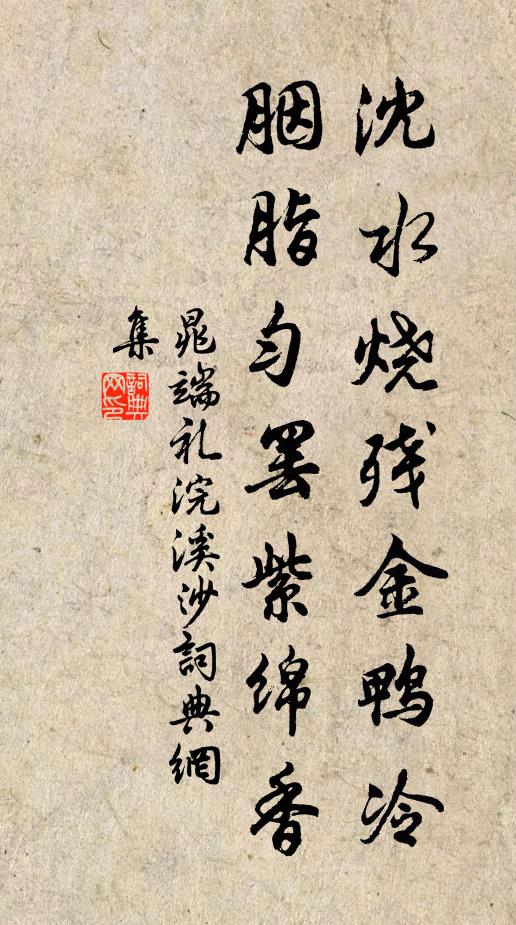 沈水烧残金鸭冷
胭脂匀罢紫绵香
晁端礼浣溪沙詞典網
集
詞典
网印